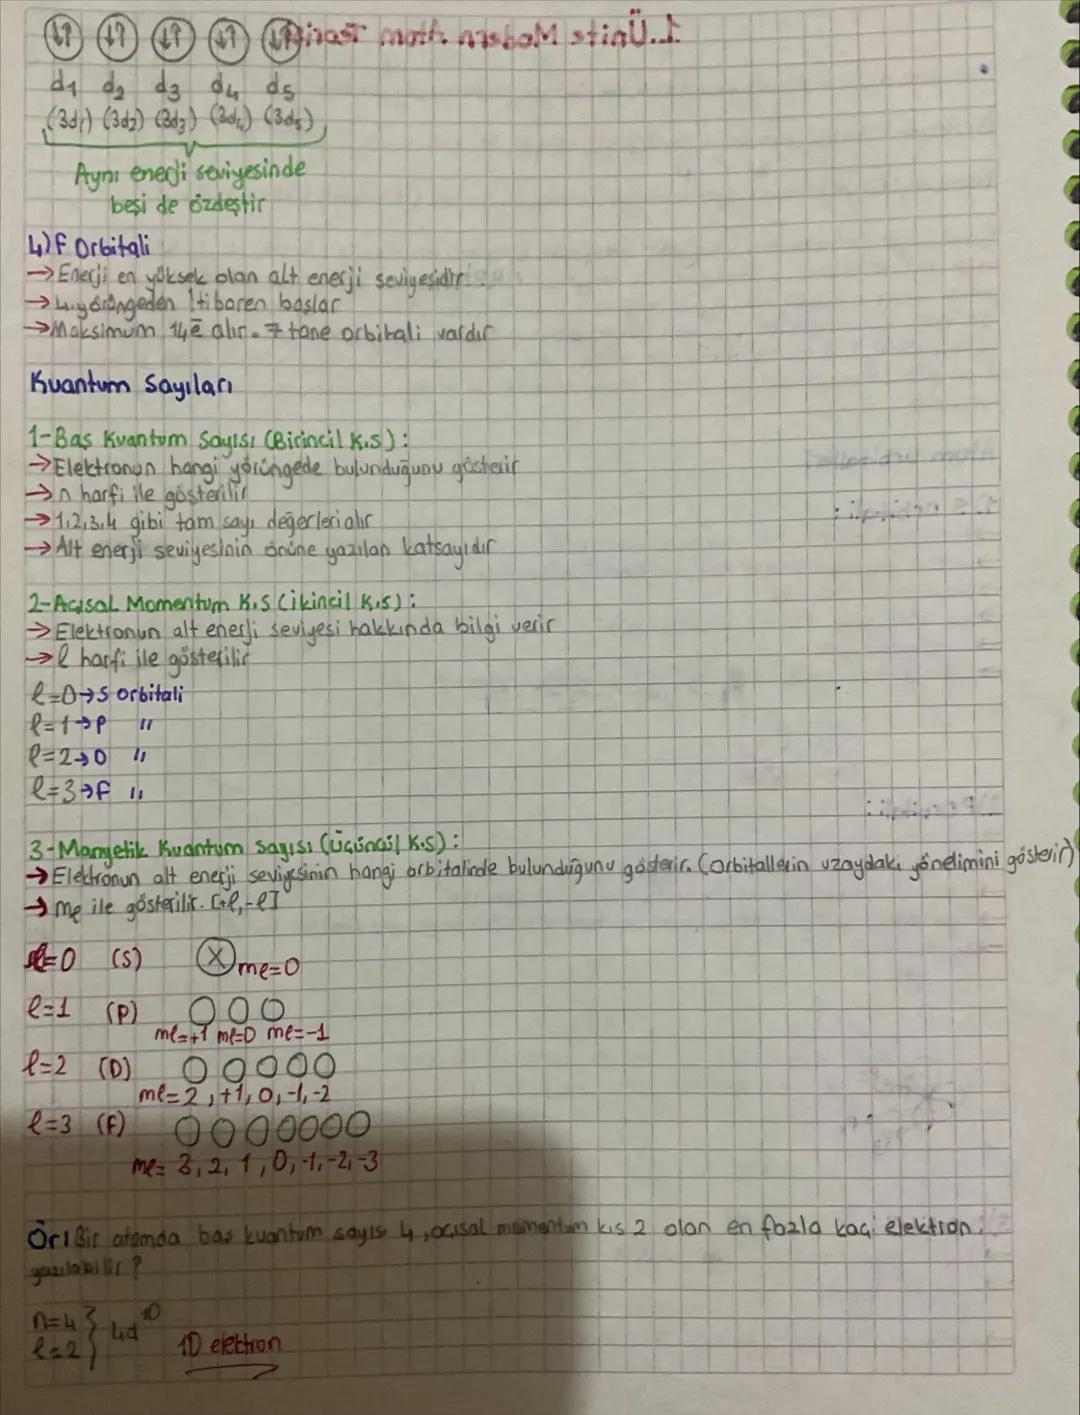 d1 d2 d3 d4 d5
(3d1) (3d2) (3d3) (3d4) (3d5)
Aynı enerji seviyesinde
beşi de özdeştir
4) F Orbitali
→Enerji en yüksek olan alt enerji seviyesidir.
→4.yörüngeden itibaren başlar
→Maksimum 14ē alır. 7 tane orbitali vardır
Kuantum Sayıları
1-Baş Kuantum Sayısı (Birincil K.S):
→Elektronun hangi yörüngede bulunduğunu gösterir
→n harfi ile gösterilir
→1,2,3,4 gibi tam sayı değerleri alır
→Alt enerji seviyesinin önüne yazılan katsayıdır
2-Açısal Momentum K.S (İkincil K.S):
→Elektronun alt enerji seviyesi hakkında bilgi verir
→ℓ harfi ile gösterilir
ℓ=0→S orbitali
ℓ=1→P "
ℓ=2→D "
ℓ=3→F "
3-Manyetik Kuantum Sayısı (Üçüncül K.S):
→Elektronun alt enerji seviyesinin hangi orbitalinde bulunduğunu gösterir. (Orbitallerin uzaydaki yönelimini gösterir)
→mℓ ile gösterilir. [+ℓ,-ℓ]
ℓ=0 (S) X mℓ=0
ℓ=1 (P)
mℓ=+1 mℓ=0 mℓ=-1
ℓ=2 (D)
mℓ=2,+1,0,-1,-2
ℓ=3 (F)
mℓ= 3,2,1,0,-1,-2,-3
Ör: Bir atomda baş kuantum sayısı 4, açısal momentum k.s 2 olan en fazla kaç elektron
yazılabilir?
n=4
ℓ=2 } 4d¹⁰
10 elektron